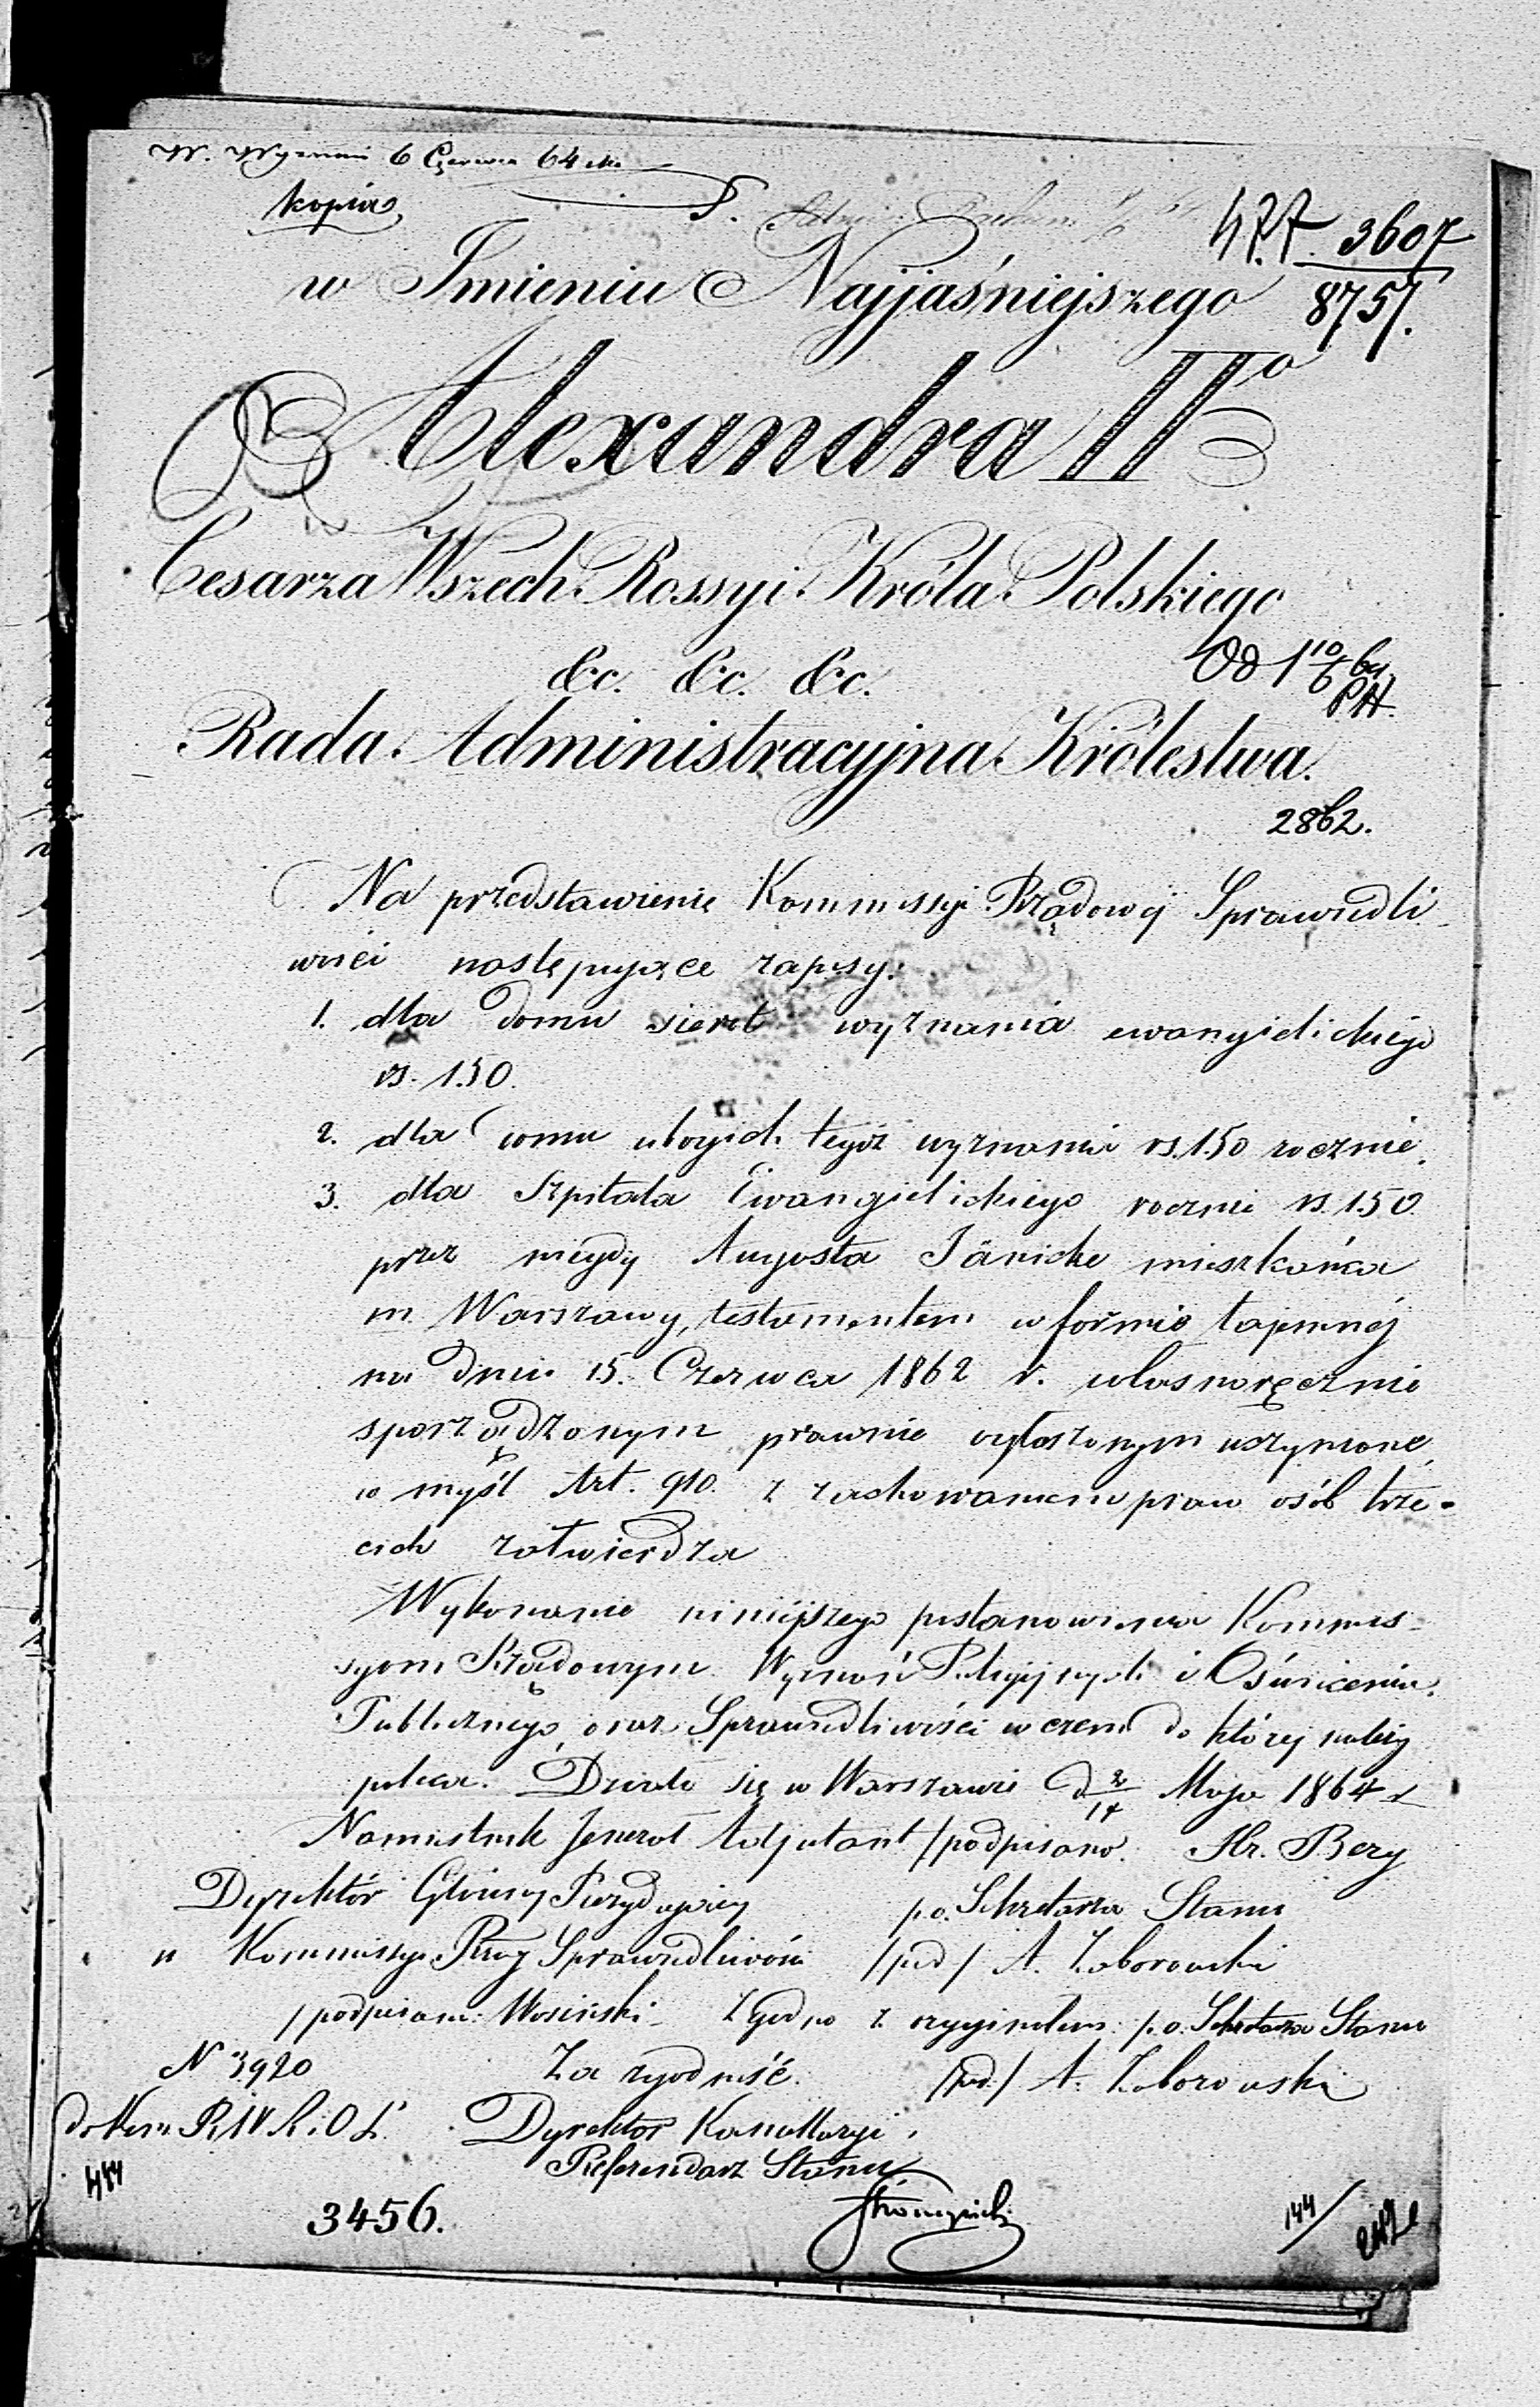 W. Wyznań 6 Czerwca 64
kopia
427. 3607
w Imieniu Najjaśniejszego 8757.
Alexandra IIº
Cesarza Wszech Rossyi Króla Polskiego
&c. &c. &c.
Od 1 10/6 64
PH.
Rada Administracyjna Królestwa.
2862.
Na przedstawienie Kommissyi Rządowej Sprawiedli-
wości następujące zapisy:
1. dla domu sierot wyznania ewangielickiego
rs. 150.
2. dla domu ubogich tegoż wyznania rs. 150 rocznie.
3. dla Szpitala Ewangielickiego rocznie rs. 150
przez niegdy Augusta Jänicke mieszkańca
m. Warszawy, testamentem w formie tajemnéj
na dniu 15. Czerwca 1862 r. własnoręcznie
sporządzonym prawnie ogłoszonym uczynione,
w myśl Art. 910. z zachowaniem praw osób trze-
cich zatwierdza
Wykonanie niniejszego postanowienia Kommis-
syom Rządowym Wyznań Religijnych i Oświecenia
Publicznego, oraz Sprawiedliwości w czem do której należy
poleca. Działo się w Warszawie d 2/14 Maja 1864 r
Namiestnik Jenerał Adjutant /podpisano. Hr. Berg
Dyrektór Główny Prezydujący p.o. Sekretarza Stanu
w Kommissyi Rząj Sprawiedliwości /pod/ A. Zaborowski
/podpisano: Wosiński Zgodno z oryginałem: p.o. Sekretarza Stanu
N 3920 Za zgodność. /pod./ A. Zaborowski
do Kom. R. W. R. i O. P. Dyrektor Kancellaryi
Referendarz Stanu
3456.
144